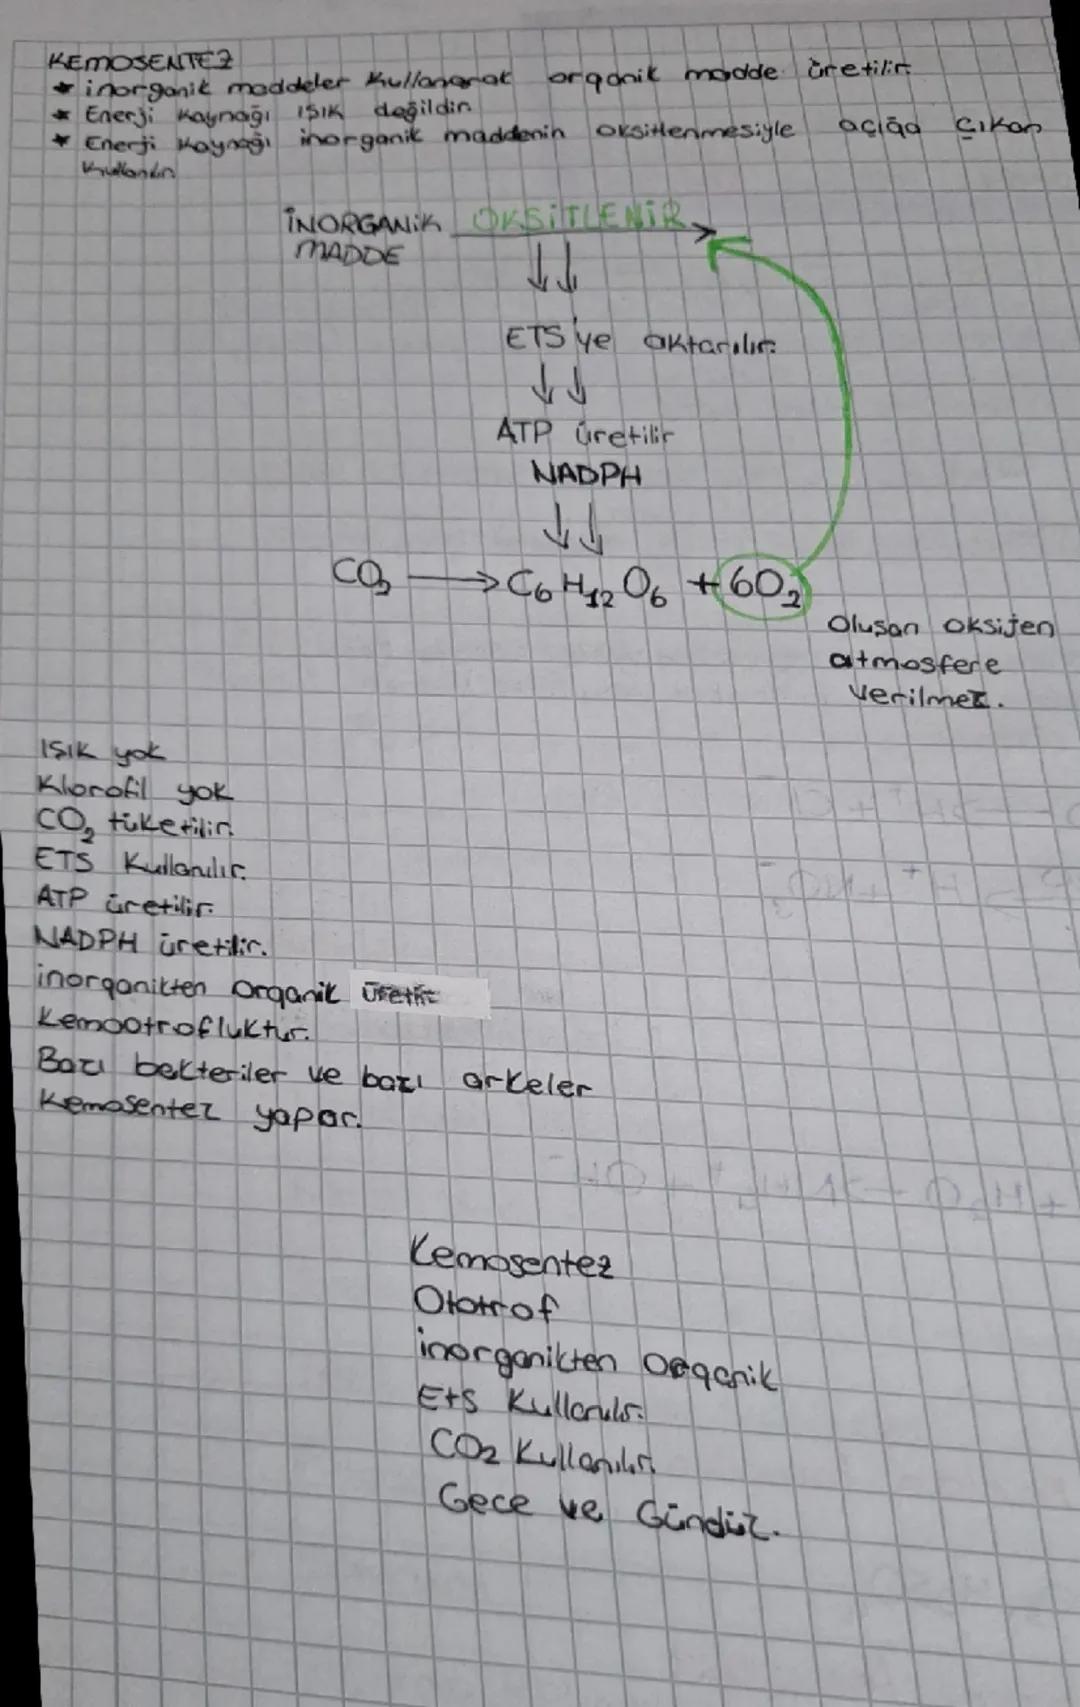 KEMOSENTEZ
* inorganik maddeler kullanarak organik madde üretilir.
* Enerji kaynağı ışık değildir.
* Enerji kaynağı inorganik maddenin oksitlenmesiyle açığa çıkan
kullanılır
İNORGANİK OKSİTLENİR
MADDE
ETS'ye aktarılır.
ATP üretilir
NADPH
CO₂ → C₆H₁₂O₆ + 6O₂
Oluşan oksijen
atmosfere
verilmez.
Işık yok
Klorofil yok
CO₂ tüketilir.
ETS Kullanılır.
ATP üretilir.
NADPH üretilir.
inorganikten organik üretir
Kemootrofluktur.
Bazı bekteriler ve bazı arkeler
Kemosentez yapar.
Kemosentez
Ototrof
inorganikten organik
Ets Kullanılır.
CO2 Kullanılır.
Gece ve Gündüz.